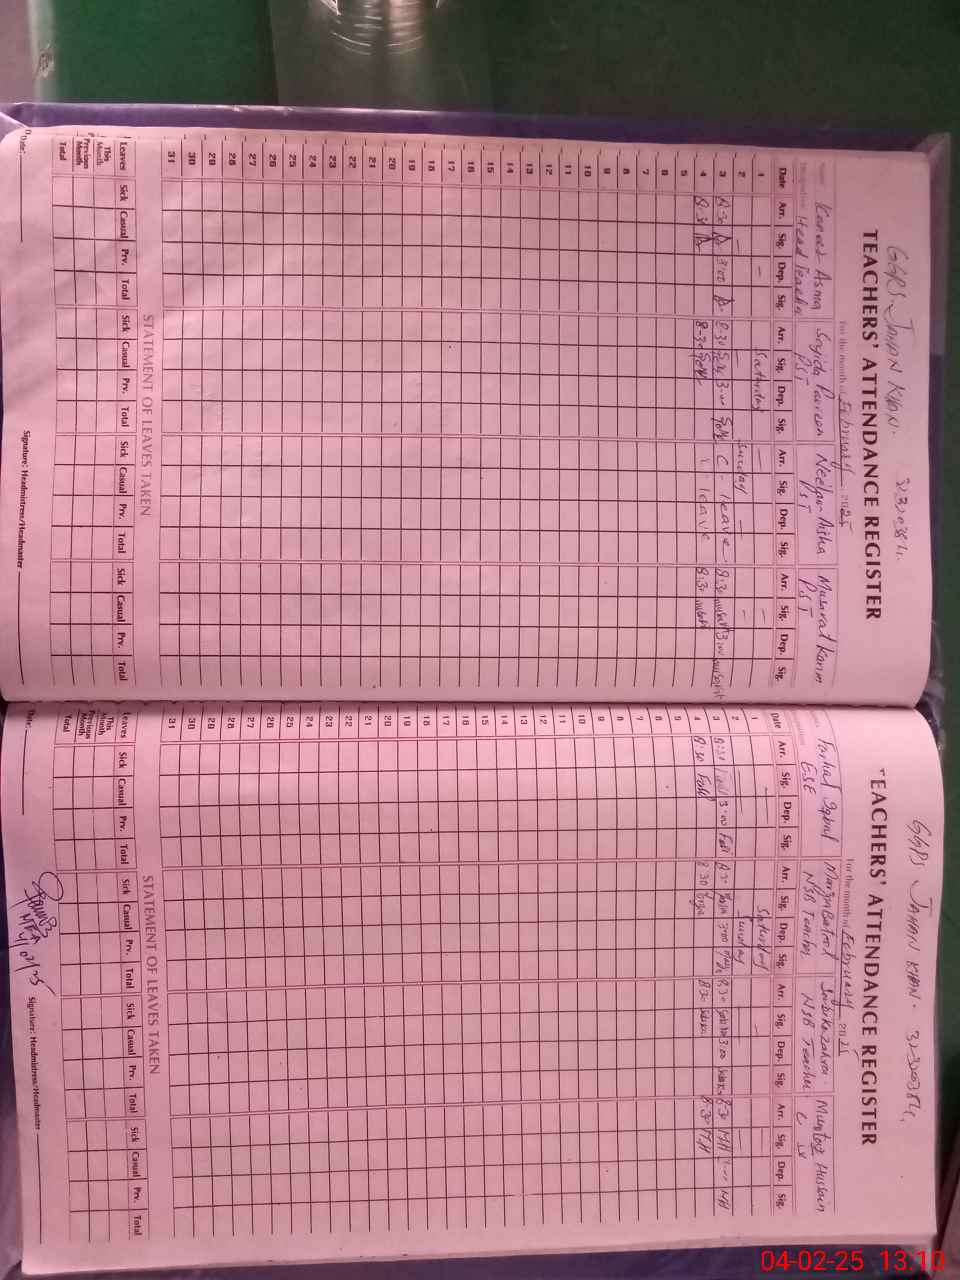 GGPS JAHAN KHAN.
TEACHERS' ATTENDANCE REGISTER
For the month of February 2025
Name Kaneez Asma Sajida Parveen Neelam Aisha Musarat Karim
Designation Head Teacher PST PST PST
Date Arr. Sig. Dep. Sig. Arr. Sig. Dep. Sig. Arr. Sig. Dep. Sig. Arr. Sig. Dep. Sig.
1 Saturday
2 Sunday
3 8:30 3:00 8:30 3:00 C - leave 8:30 3:00
4 8:30 8:30 leave 8:30
5
6
7
8
9
10
11
12
13
14
15
16
17
18
19
20
21
22
23
24
25
26
27
28
29
30
31
STATEMENT OF LEAVES TAKEN
Leaves Sick Casual Prv. Total Sick Casual Prv. Total Sick Casual Prv. Total Sick Casual Prv. Total
This Month
Previous Month
Total
Date: Signature: Headmistress/Headmaster
GGPS JAHAN KHAN.
TEACHERS' ATTENDANCE REGISTER
For the month of February 2025
Farhat Iqbal Batool Zahra Mumtaz Hussain
ESE NSB Teacher NSB Teacher C IV
Date Arr. Sig. Dep. Sig. Arr. Sig. Dep. Sig. Arr. Sig. Dep. Sig. Arr. Sig. Dep. Sig.
1 Saturday
2 Sunday
3 8:30 3:00 8:30 3:00 8:30 3:00 8:30 MH 3:00 MH
4 8:30 8:30 8:30 8:30 MH
5
6
7
8
9
10
11
12
13
14
15
16
17
18
19
20
21
22
23
24
25
26
27
28
29
30
31
STATEMENT OF LEAVES TAKEN
Leaves Sick Casual Prv. Total Sick Casual Prv. Total Sick Casual Prv. Total Sick Casual Prv. Total
This Month
Previous Month
Total
Date: Signature: Headmistress/Headmaster
04-02-25 13:10